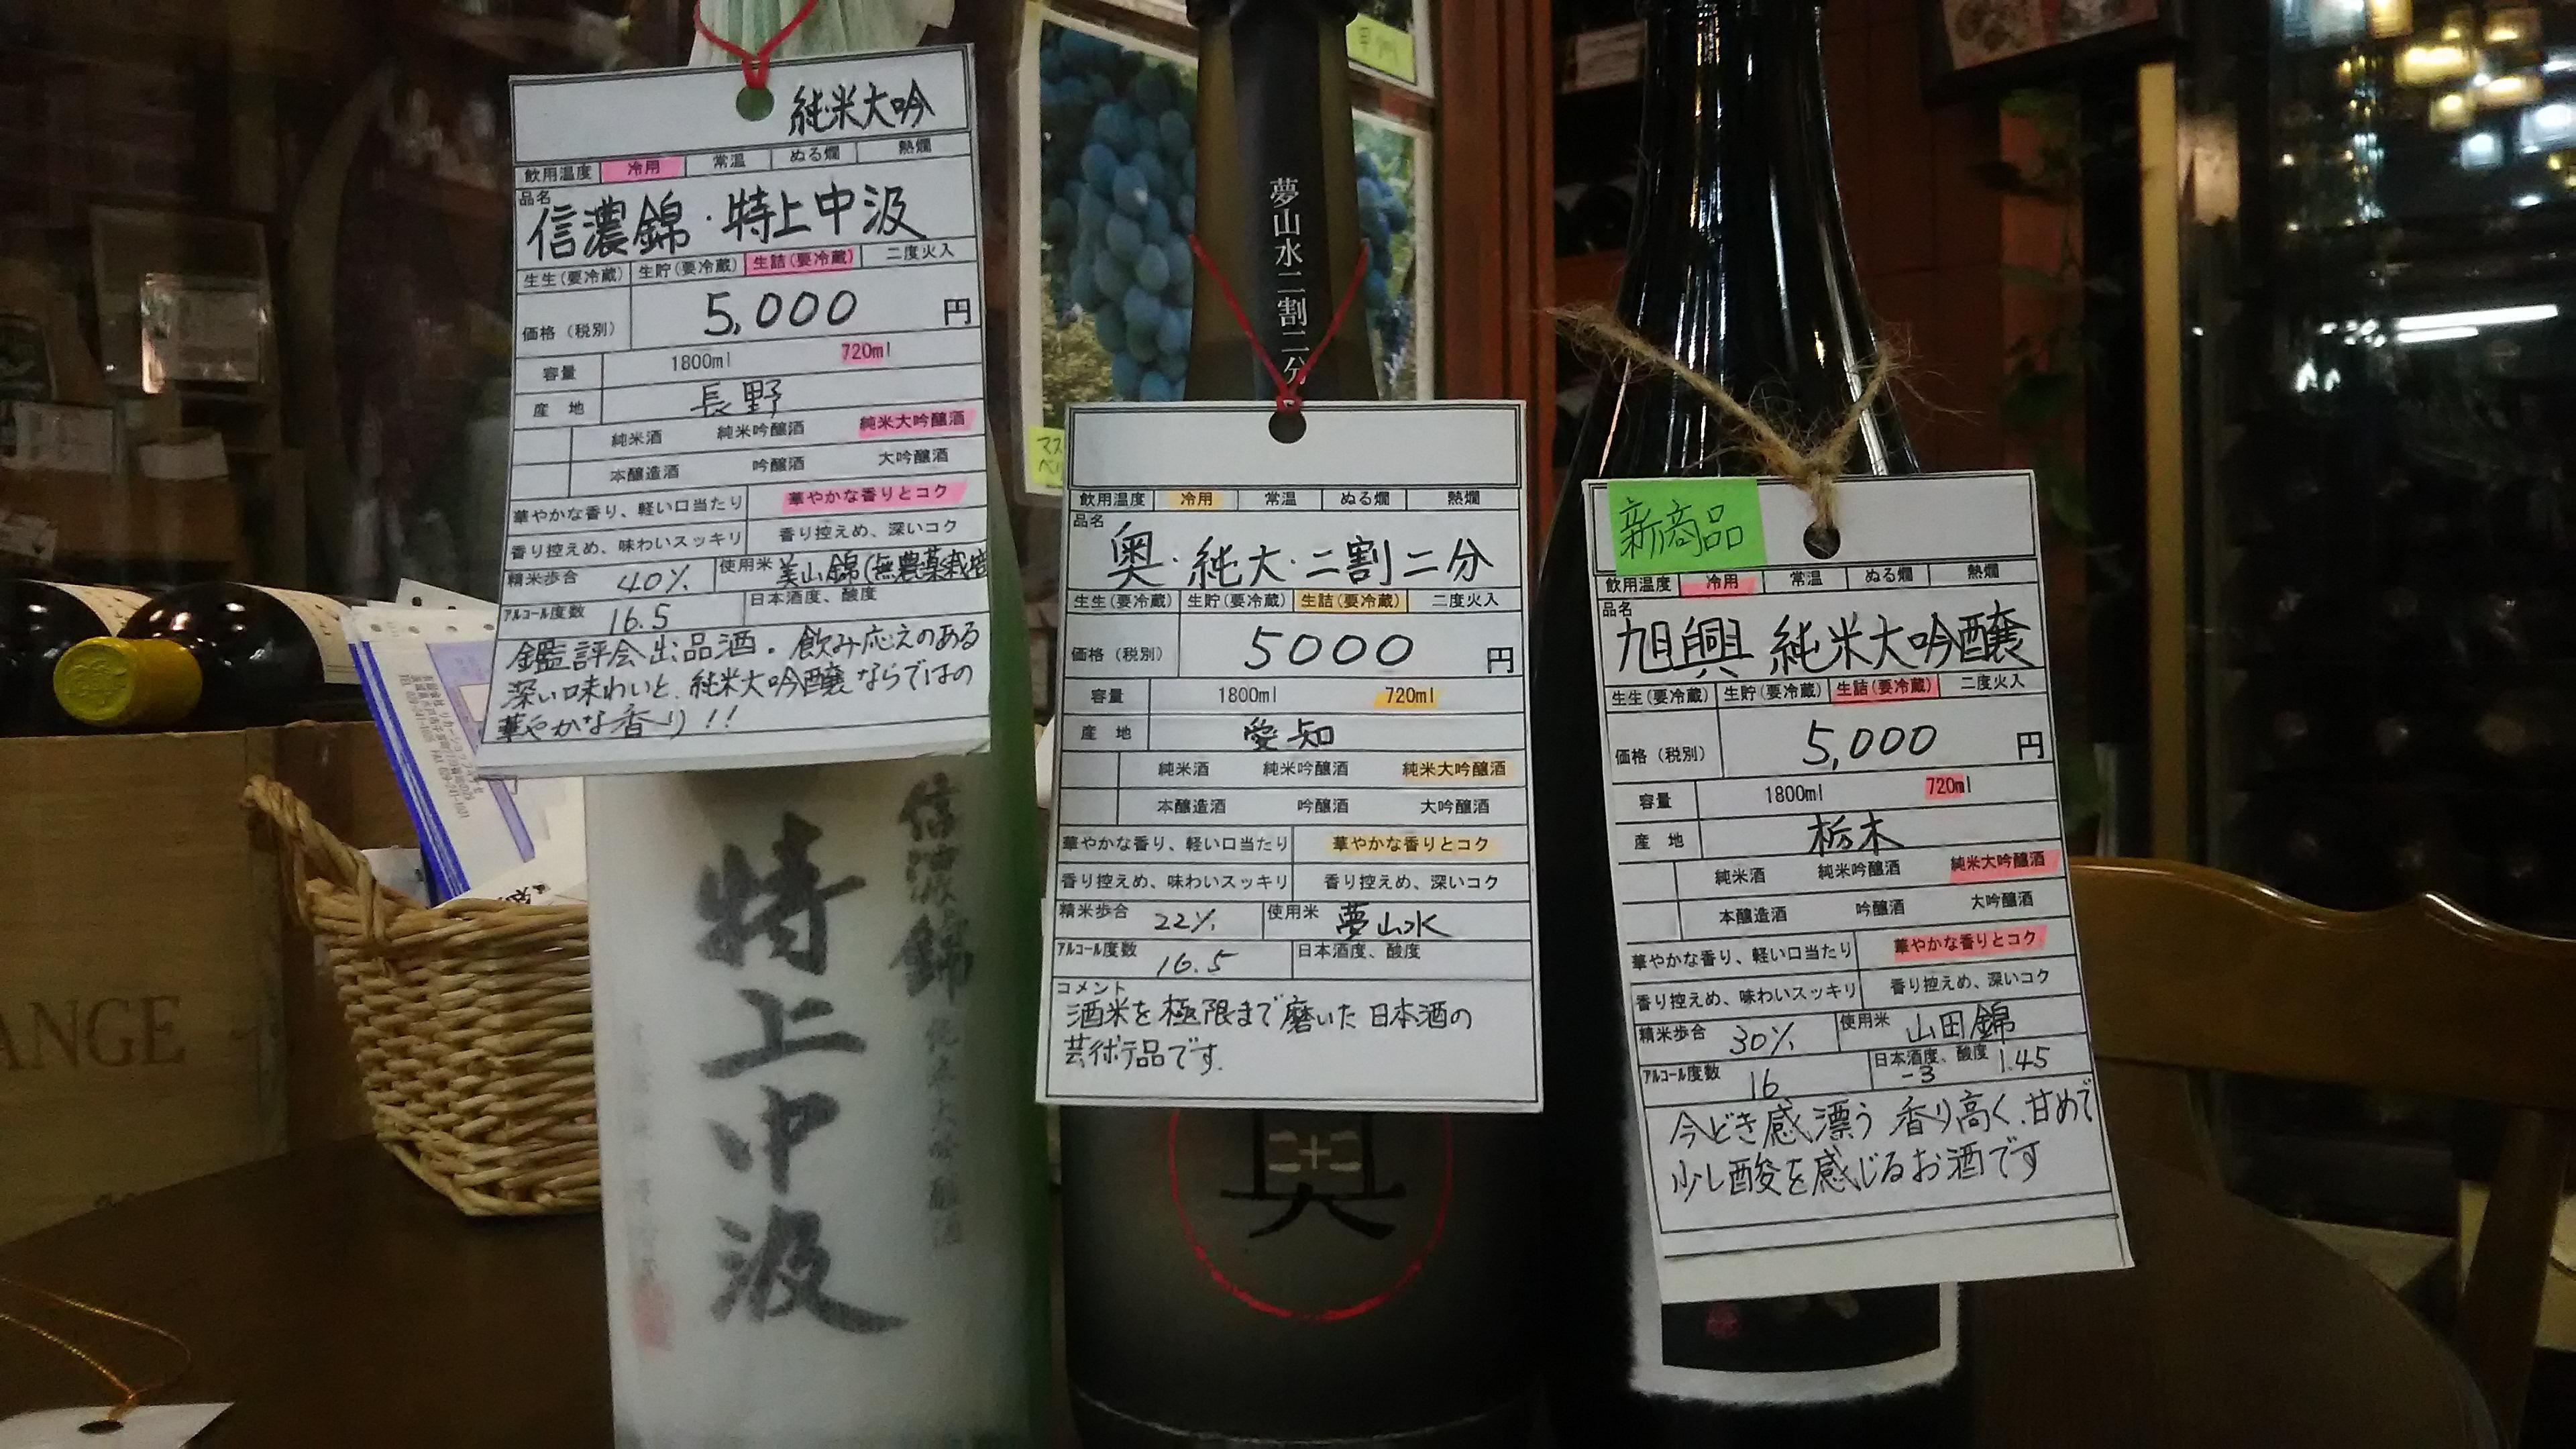 純米大吟
飲用温度 冷用 常温 ぬる燗 熱燗
品名
信濃錦・特上中汲
生生(要冷蔵) 生貯(要冷蔵) 生詰(要冷蔵) 二度火入
価格（税別） 5,000 円
容量 1800ml 720ml
産 地 長野
純米酒 純米吟醸酒 純米大吟醸酒
本醸造酒 吟醸酒 大吟醸酒
華やかな香り、軽い口当たり 華やかな香りとコク
香り控えめ、味わいスッキリ 香り控えめ、深いコク
精米歩合 40% 使用米 美山錦(無農薬栽培
アルコール度数 16.5 日本酒度、酸度
鑑評会出品酒。飲み応えのある
深い味わいと、純米大吟醸ならではの
華やかな香り!!
信濃錦
特上中汲
夢山水二割二分
飲用温度 冷用 常温 ぬる燗 熱燗
品名
奥・純大・二割二分
生生(要冷蔵) 生貯(要冷蔵) 生詰(要冷蔵) 二度火入
価格（税別） 5000 円
容量 1800ml 720ml
産 地 愛知
純米酒 純米吟醸酒 純米大吟醸酒
本醸造酒 吟醸酒 大吟醸酒
華やかな香り、軽い口当たり 華やかな香りとコク
香り控えめ、味わいスッキリ 香り控えめ、深いコク
精米歩合 22% 使用米 夢山水
アルコール度数 16.5 日本酒度、酸度
コメント
酒米を極限まで磨いた日本酒の
芸術作品です.
新商品
飲用温度 冷用 常温 ぬる燗 熱燗
品名
旭興 純米大吟醸
生生(要冷蔵) 生貯(要冷蔵) 生詰(要冷蔵) 二度火入
価格（税別） 5,000 円
容量 1800ml 720ml
産 地 栃木
純米酒 純米吟醸酒 純米大吟醸酒
本醸造酒 吟醸酒 大吟醸酒
華やかな香り、軽い口当たり 華やかな香りとコク
香り控えめ、味わいスッキリ 香り控えめ、深いコク
精米歩合 30% 使用米 山田錦
アルコール度数 16 日本酒度、酸度 -3 1.45
今どき感漂う 香り高く、甘めで
少し酸を感じるお酒です
ANGE